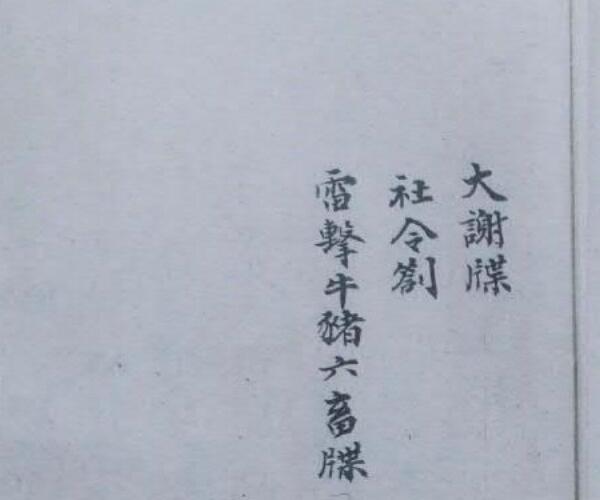 大謝牒
社令劄
雷擊牛豬六畜牒